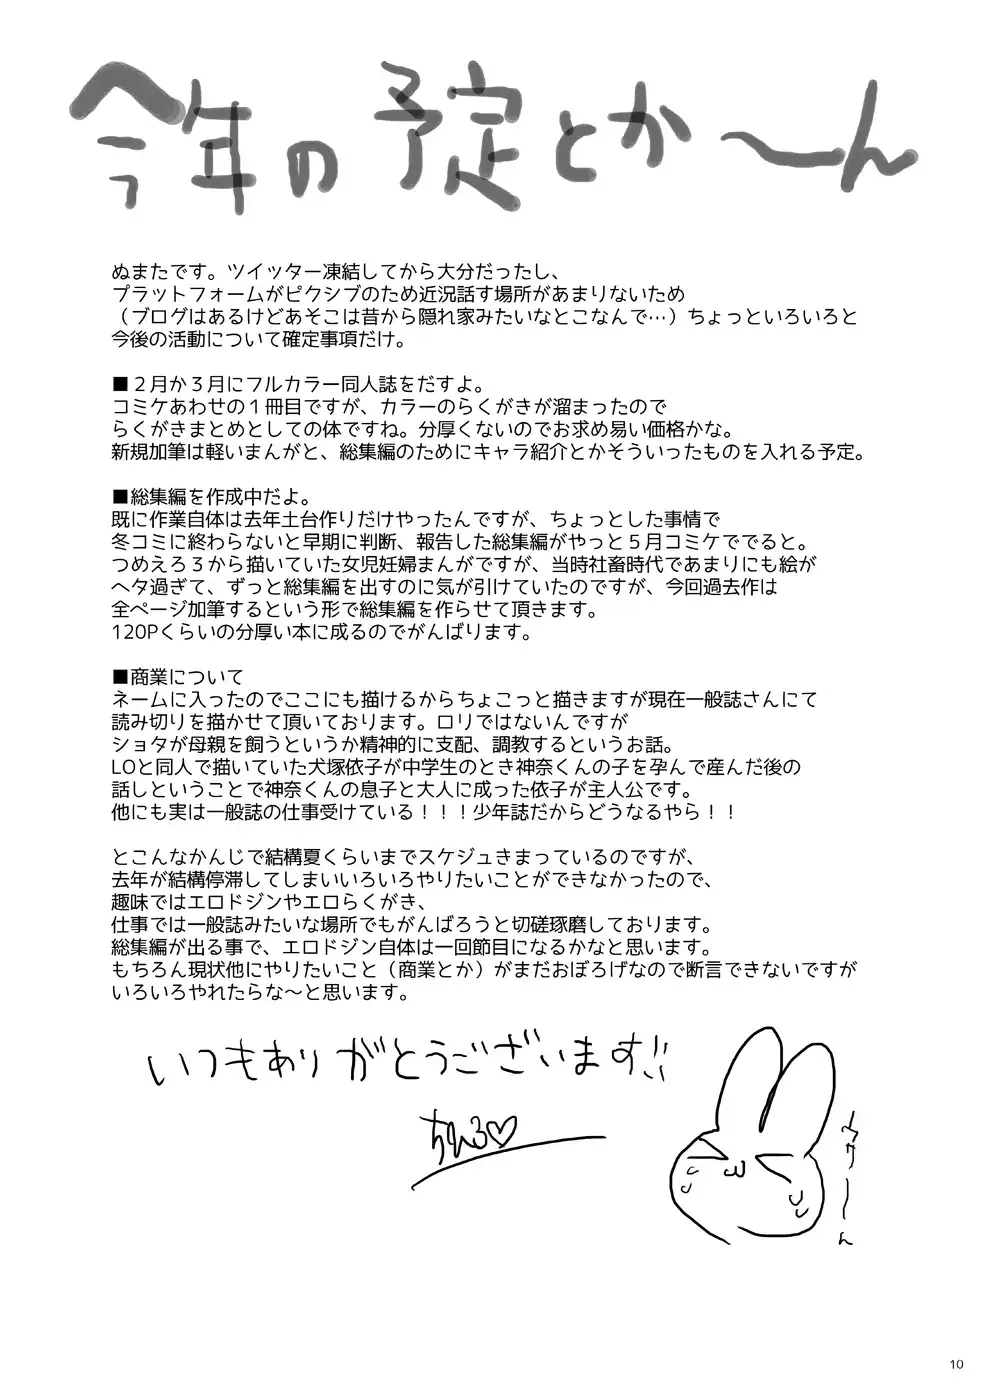 今年の予定とか〜ん
ぬまたです。ツイッター凍結してから大分だったし、
プラットフォームがピクシブのため近況話す場所があまりないため
（ブログはあるけどあそこは昔から隠れ家みたいなとこなんで…）ちょっといろいろと
今後の活動について確定事項だけ。
■２月か３月にフルカラー同人誌をだすよ。
コミケあわせの１冊目ですが、カラーのらくがきが溜まったので
らくがきまとめとしての体ですね。分厚くないのでお求め易い価格かな。
新規加筆は軽いまんがと、総集編のためにキャラ紹介とかそういったものを入れる予定。
■総集編を作成中だよ。
既に作業自体は去年土台作りだけやったんですが、ちょっとした事情で
冬コミに終わらないと早期に判断、報告した総集編がやっと５月コミケででると。
つめえろ３から描いていた女児妊婦まんがですが、当時社畜時代であまりにも絵が
ヘタ過ぎて、ずっと総集編を出すのに気が引けていたのですが、今回過去作は
全ページ加筆するという形で総集編を作らせて頂きます。
120Pくらいの分厚い本に成るのでがんばります。
■商業について
ネームに入ったのでここにも描けるからちょこっと描きますが現在一般誌さんにて
読み切りを描かせて頂いております。ロリではないんですが
ショタが母親を飼うというか精神的に支配、調教するというお話。
LOと同人で描いていた犬塚依子が中学生のとき神奈くんの子を孕んで産んだ後の
話しということで神奈くんの息子と大人に成った依子が主人公です。
他にも実は一般誌の仕事受けている！！！少年誌だからどうなるやら！！
とこんなかんじで結構夏くらいまでスケジュきまっているのですが、
去年が結構停滞してしまいいろいろやりたいことができなかったので、
趣味ではエロドジンやエロらくがき、
仕事では一般誌みたいな場所でもがんばろうと切磋琢磨しております。
総集編が出る事で、エロドジン自体は一回節目になるかなと思います。
もちろん現状他にやりたいこと（商業とか）がまだおぼろげなので断言できないですが
いろいろやれたらな〜と思います。
いつもありがとうございます!!
ちひろ♡
10